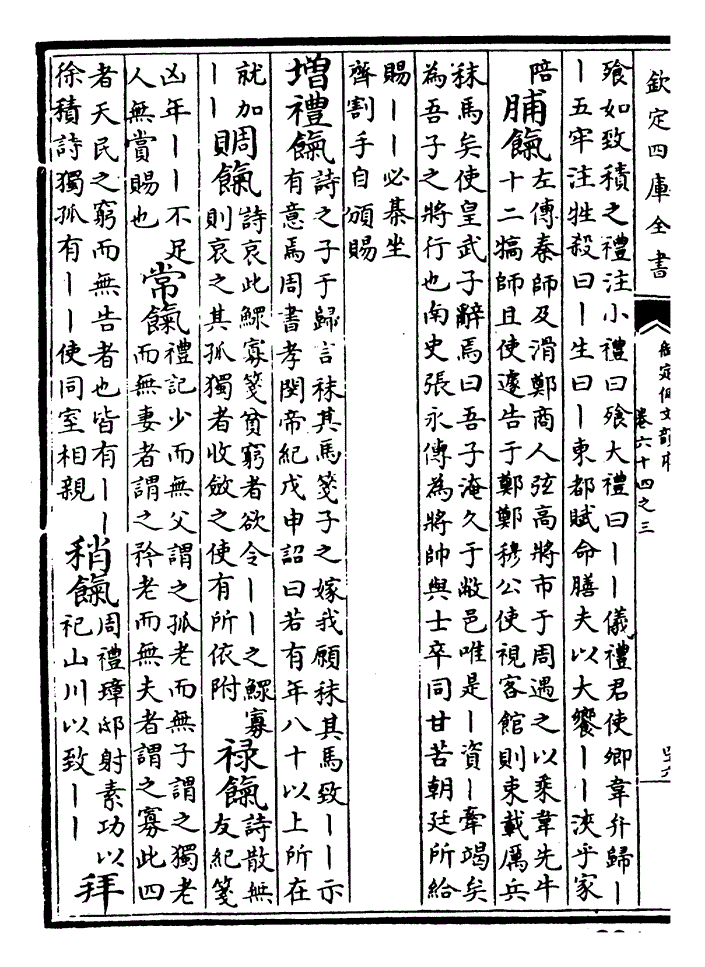 欽定四庫全書
御定佩文韻府
卷六十四之三
四六
飱如致積之禮注小禮曰飱大禮曰丨丨儀禮君使卿韋弁歸丨
丨五牢注牲殺曰丨生曰丨東都賦命膳夫以大饗丨丨浹乎家
陪
脯餼
左傳秦師及滑鄭商人弦高將市于周遇之以乘韋先牛
十二犒師且使遽告于鄭鄭穆公使視客館則束載厲兵
秣馬矣使皇武子辭焉曰吾子淹久于敝邑唯是丨資丨牽竭矣
為吾子之將行也南史張永傳為將帥與士卒同甘苦朝廷所給
賜丨丨必棊坐
齊割手自頒賜
増禮餼
詩之子于歸言秣其馬箋子之嫁我願秣其馬致丨丨示
有意焉周書孝閔帝紀戊申詔曰若有年八十以上所在
就加
丨丨
賙餼
詩哀此鰥寡箋貧窮者欲令丨丨之鰥寡
則哀之其孤獨者收斂之使有所依附
祿餼
詩散無
友紀箋
凶年丨丨不足
人無賞賜也
常餼
禮記少而無父謂之孤老而無子謂之獨老
而無妻者謂之矜老而無夫者謂之寡此四
者天民之窮而無告者也皆有丨丨
徐積詩獨孤有丨丨使同室相親
稍餼
周禮璋邸射素功以
祀山川以致丨丨
拜